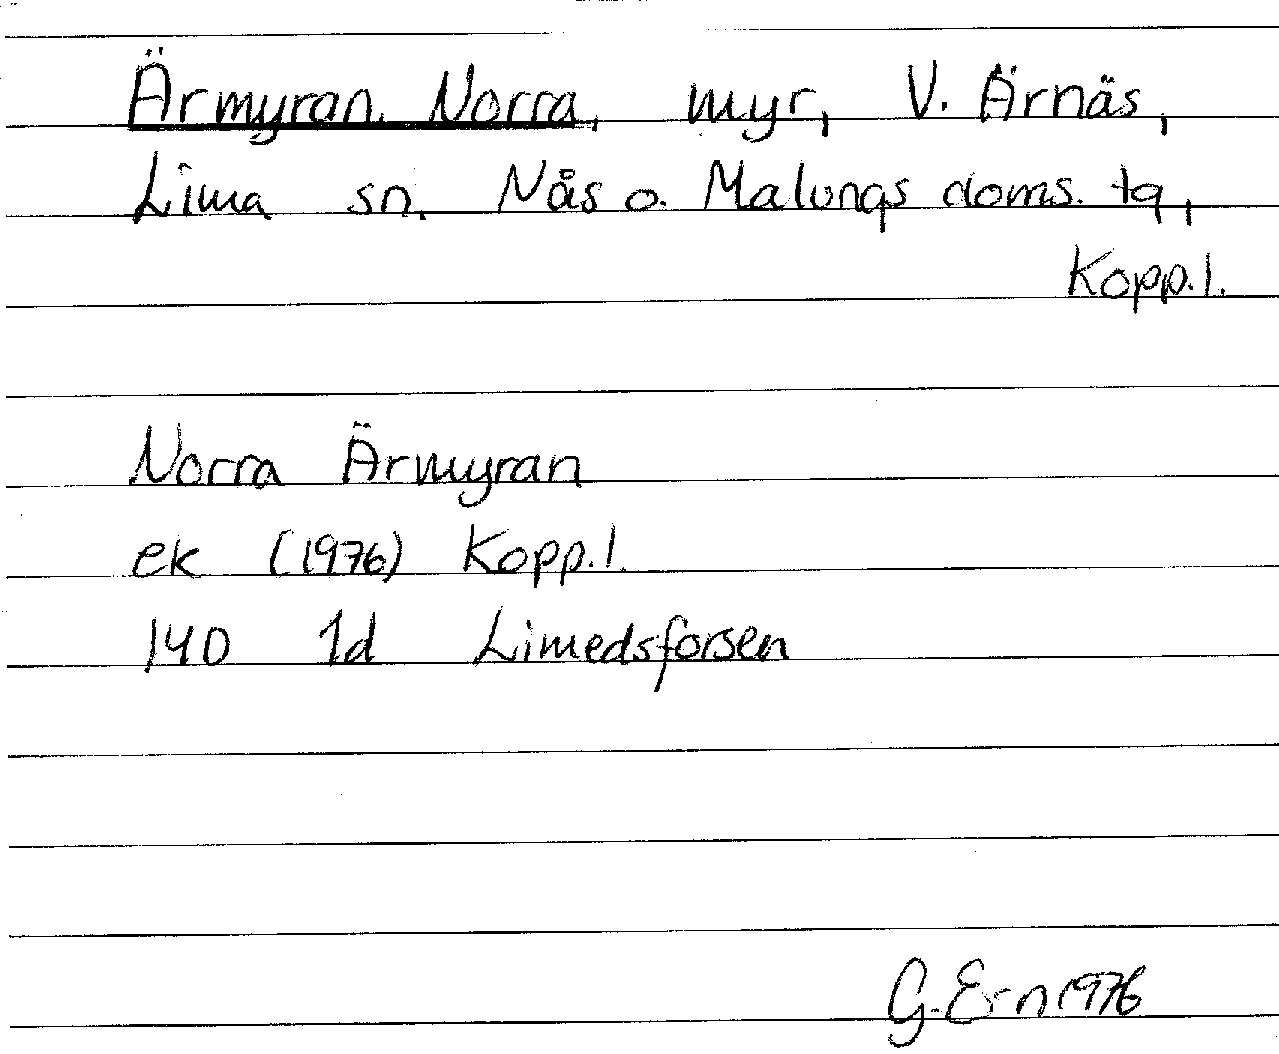 Ärmyran, Norra, myr, V. Ärnäs,
Lima sn. Nås o. Malungs doms. tg,
Kopp.l.
Norra Ärmyran
ek (1976) Kopp.l.
140 1d Limedsforsen
G. Ern 1976